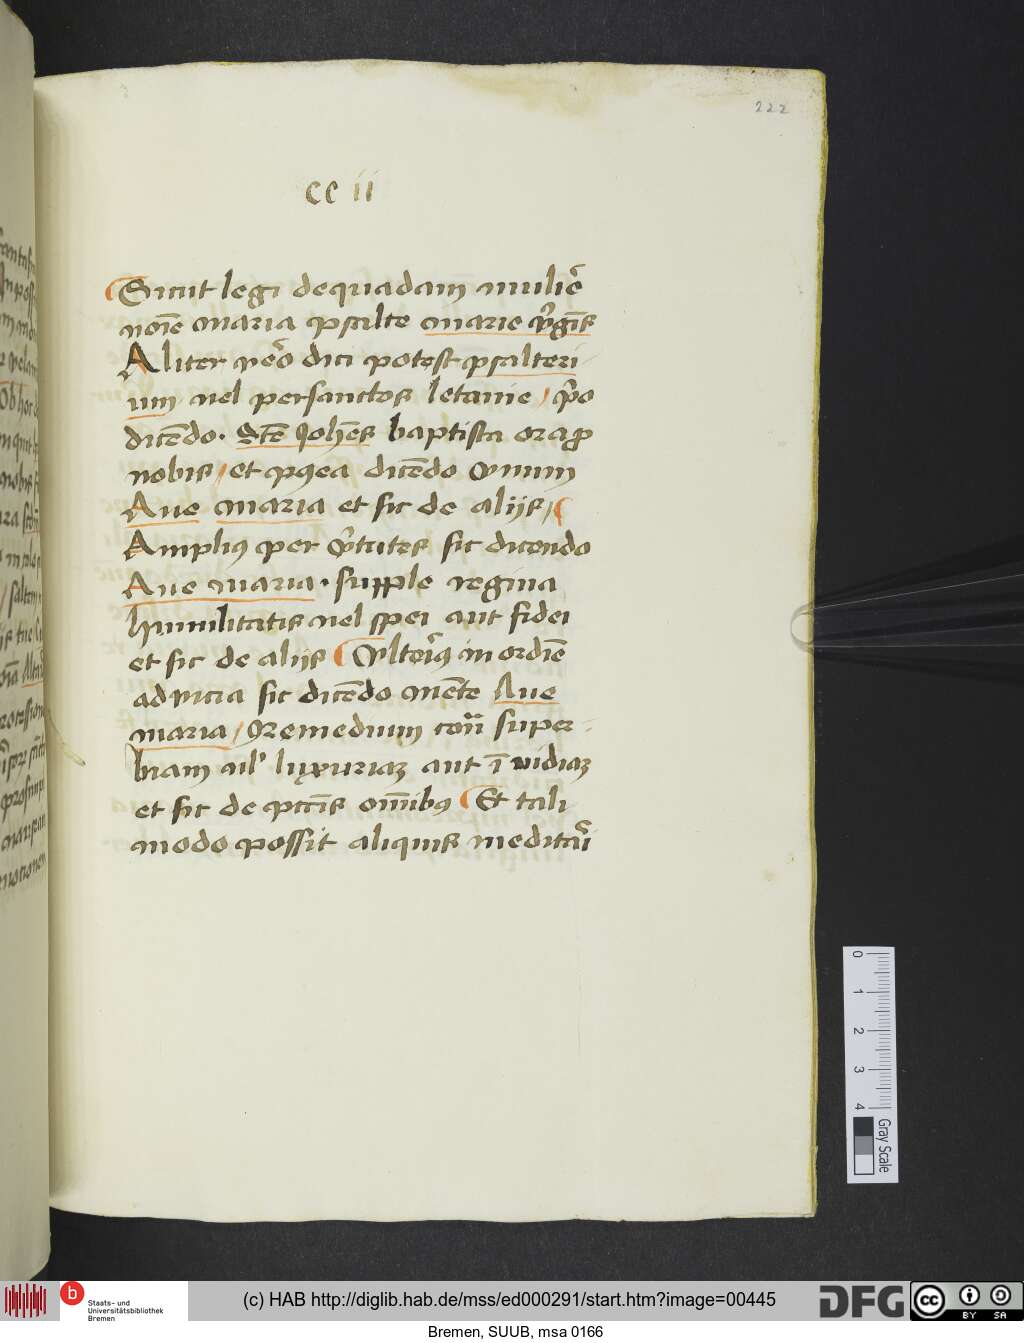 222
cc ii
Sicut legi de quadam muliē
noīe maria psalte marie v̄gīs
Aliter vēo dici potest psalteri
um vel per sanctos letanie / v̄o
dicēdo. Sc̄te Johēs baptista ora p̄
nobis / et p9ea dicēdo vnum
Aue maria et sic de alijs /
Ampli9 per v̄tutes sic dicendo
Aue maria. supple regina
humilitatis vel spei aut fidei
et sic de alijs vltei9 in ordīe
ad vicia sic dicēdo mēte Aue
maria / Remedium con̄ super
biam vil' luxuriaz aut īvidiaz
et sic de pccīs om̄ib9 Et tali
modo possit aliquis meditāi
0 1 2 3 4 Gray Scale
b Staats- und
Universitätsbibliothek
Bremen
(c) HAB http://diglib.hab.de/mss/ed000291/start.htm?image=00445
DFG
cc BY SA
Bremen, SUUB, msa 0166